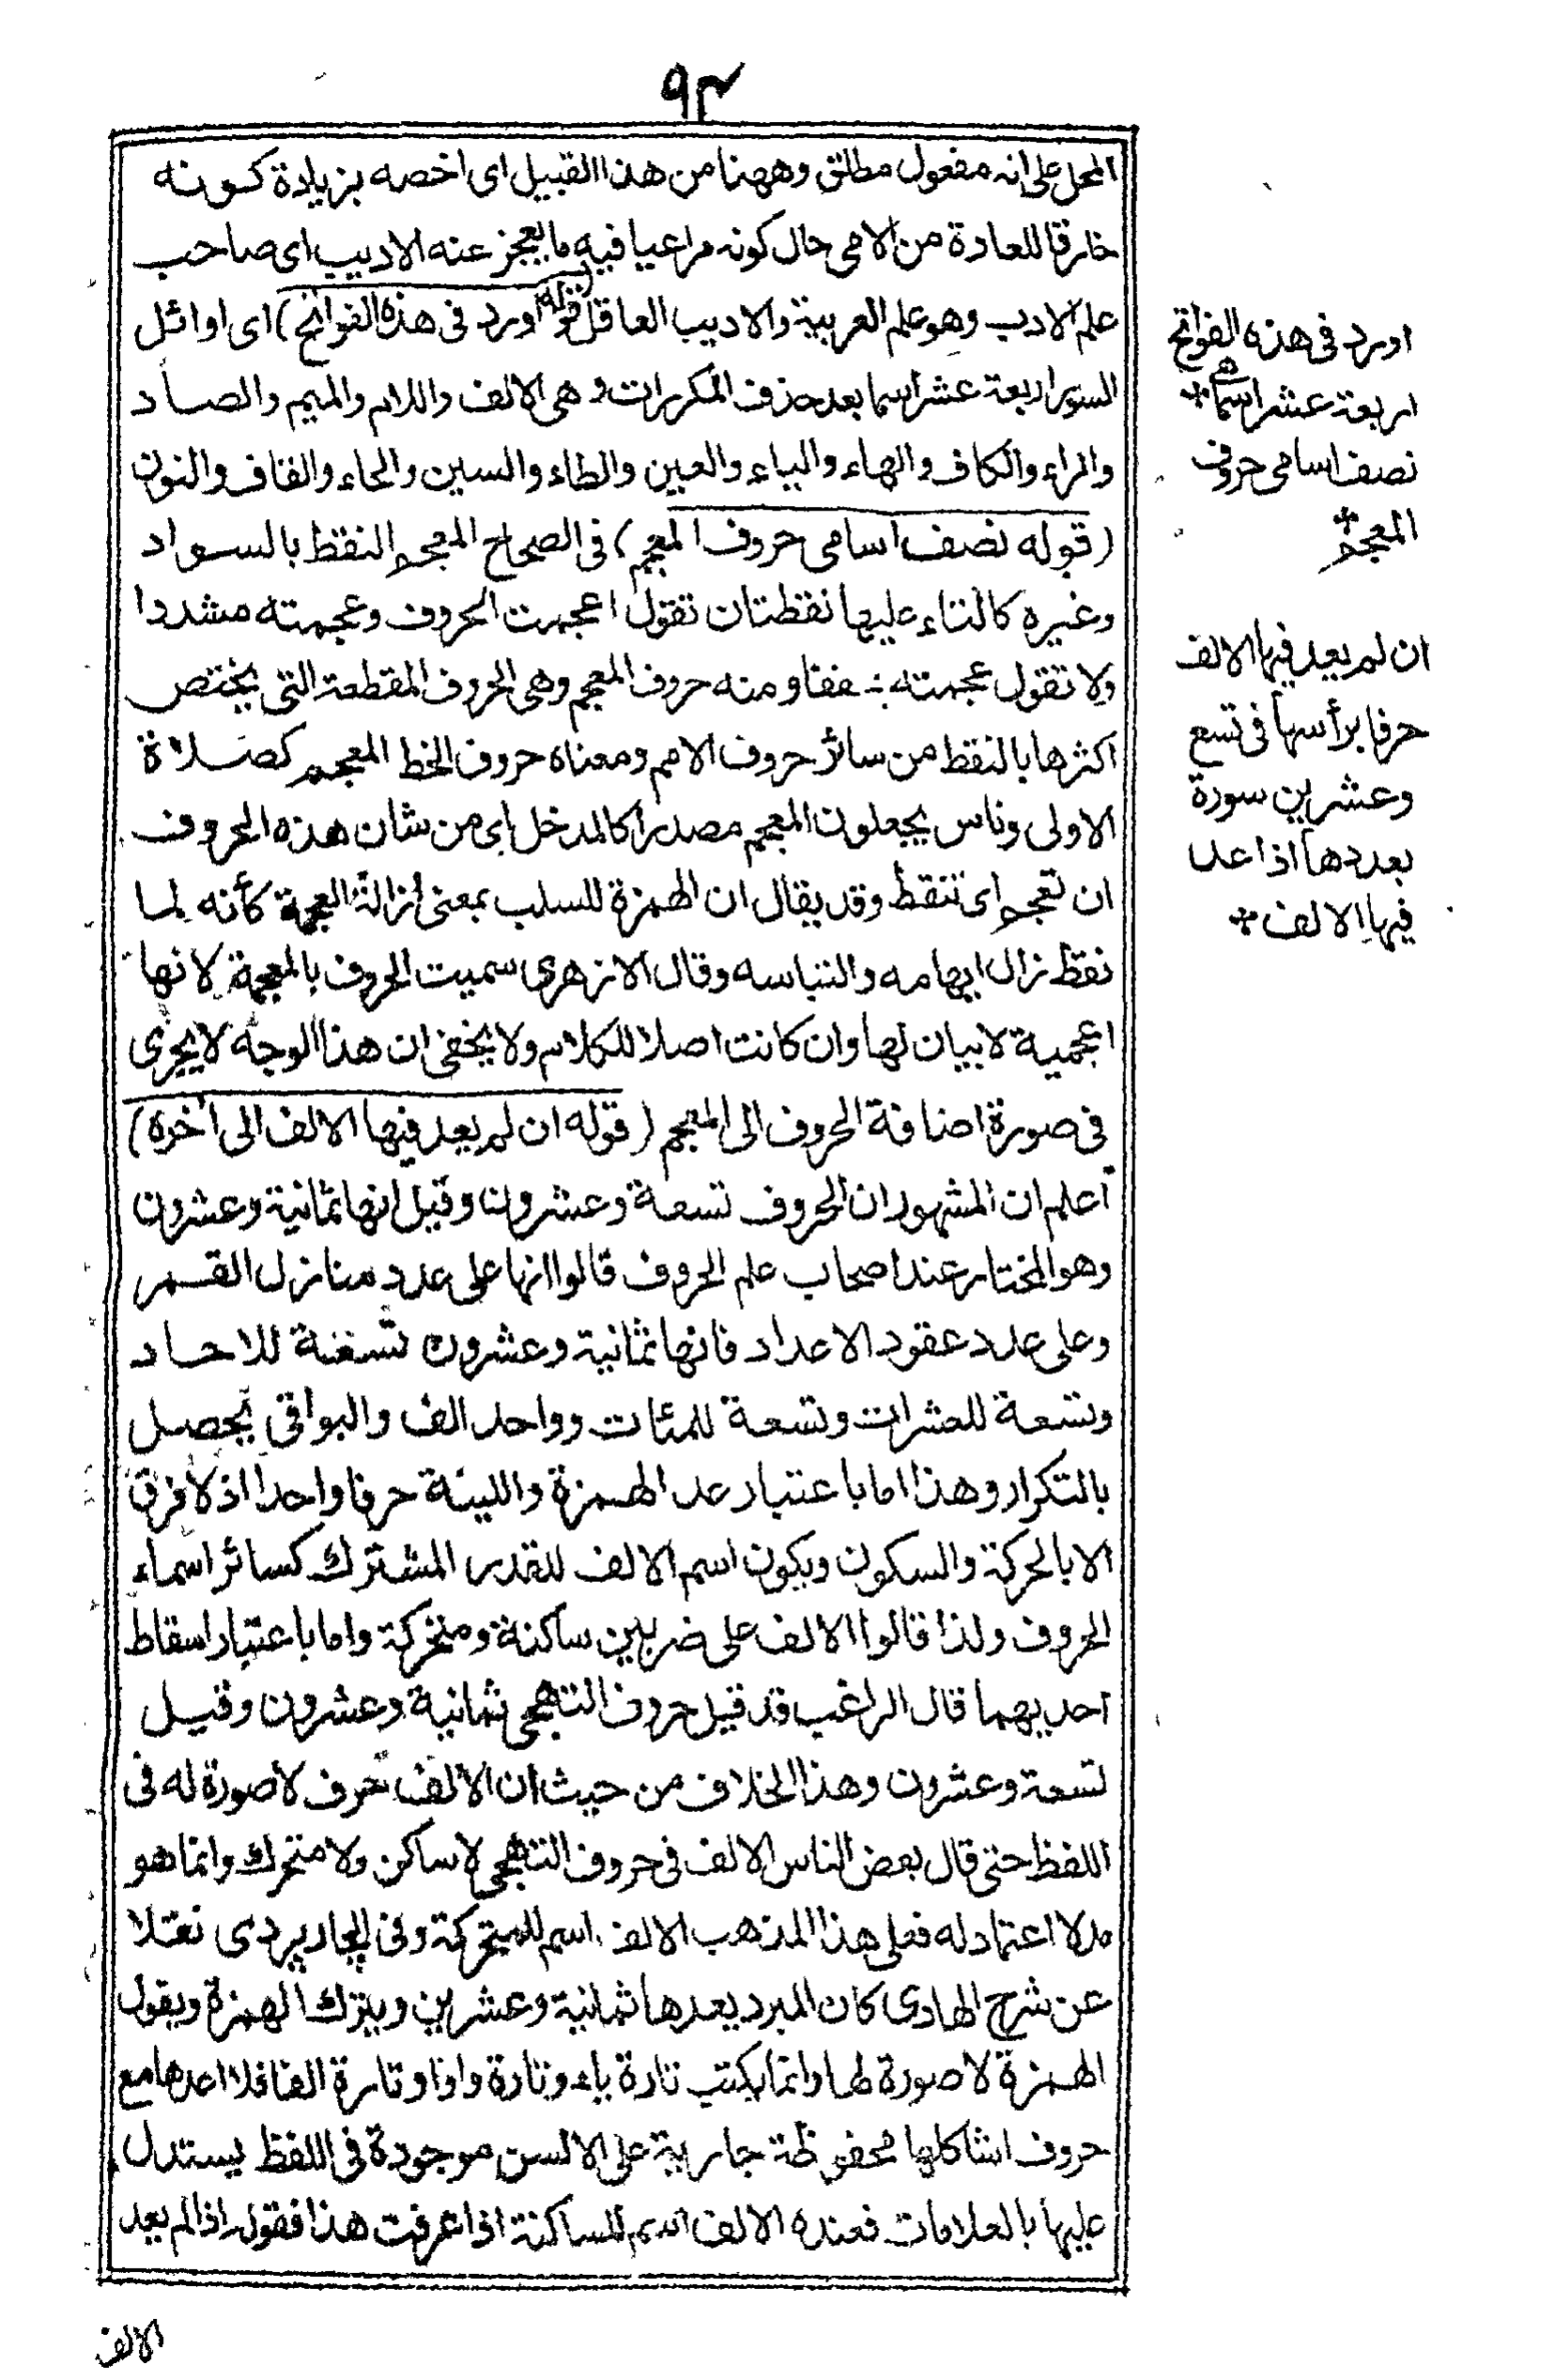 ٩٣
المحل على انه مفعول مطلق وههنا من هذا القبيل اى اخصه بزيادة كونه
خارقا للعادة من الامى حال كونه مراعيا فيه ما يعجز عنه الاديب اى صاحب
علم الادب وهو علم العربية والاديب العاقل (قوله اورد فى هذه الفواتح) اى اوائل
السور اربعة عشر اسما بعد حذف المكررات وهى الالف واللام والميم والصاد
والراء والكاف والهاء والياء والعين والطاء والسين والحاء والقاف والنون
(قوله نصف اسامى حروف المعجم) فى الصحاح المعجم النقط بالسواد
وغيره كالتاء عليها نقطتان تقول اعجمت الحروف وعجمته مشددا
ولا تقول عجمته مخففا ومنه حروف المعجم وهى الحروف المقطعة التى يختص
اكثرها بالنقط من سائر حروف الامم ومعناه حروف الخط المعجم كصلاة
الاولى وناس يجعلون المعجم مصدرا كالمدخل اى من شان هذه الحروف
ان تعجم اى تنقط وقد يقال ان الهمزة للسلب بمعنى ازالة العجمة كأنه لما
نقط زال ابهامه والتباسه وقال الازهرى سميت الحروف بالمعجمة لانها
اعجمية لا بيان لها وان كانت اصلا للكلام ولا يخفى ان هذا الوجه لا يجرى
فى صورة اضافة الحروف الى المعجم (قوله ان لم يعد فيها الالف الى آخره)
اعلم ان المشهور ان الحروف تسعة وعشرون وقيل انها ثمانية وعشرون
وهو المختار عند اصحاب علم الحروف قالوا انها على عدد منازل القمر
وعلى عدد عقود الاعداد فانها ثمانية وعشرون تسعة للاحاد
وتسعة للعشرات وتسعة للمئات وواحد الف والبواقى يحصل
بالتكرار وهذا اما باعتبار عد الهمزة واللينة حرفا واحدا اذ لا فرق
الا بالحركة والسكون ويكون اسم الالف للقدر المشترك كسائر اسماء
الحروف ولذا قالوا الالف على ضربين ساكنة ومتحركة واما باعتبار اسقاط
احديهما قال الراغب قد قيل حروف التهجى ثمانية وعشرون وقيل
تسعة وعشرون وهذا الخلاف من حيث ان الالف حرف لا صورة له فى
اللفظ حتى قال بعض الناس الالف فى حروف التهجى لا ساكن ولا متحرك وانما هو
مد لا اعتماد له فعلى هذا المذهب الالف اسم للمتحركة وفى الجاربردى نقلا
عن شرح الهادى كان المبرد يعدها ثمانية وعشرين ويترك الهمزة ويقول
الهمزة لا صورة لها وانما يكتب تارة ياء وتارة واوا وتارة الفا فلا اعدها مع
حروف اشكالها محفوظة جارية على الالسن موجودة فى اللفظ يستدل
عليها بالعلامات فعنده الالف اسم للساكنة اذا عرفت هذا فقول اذا لم يعد
الالف
اورد فى هذه الفواتح
اربعة عشر اسما *
نصف اسامى حروف
المعجم *
ان لم يعد فيها الالف
حرفا برأسها فى تسع
وعشرين سورة
بعددها اذا عد
فيها الالف *